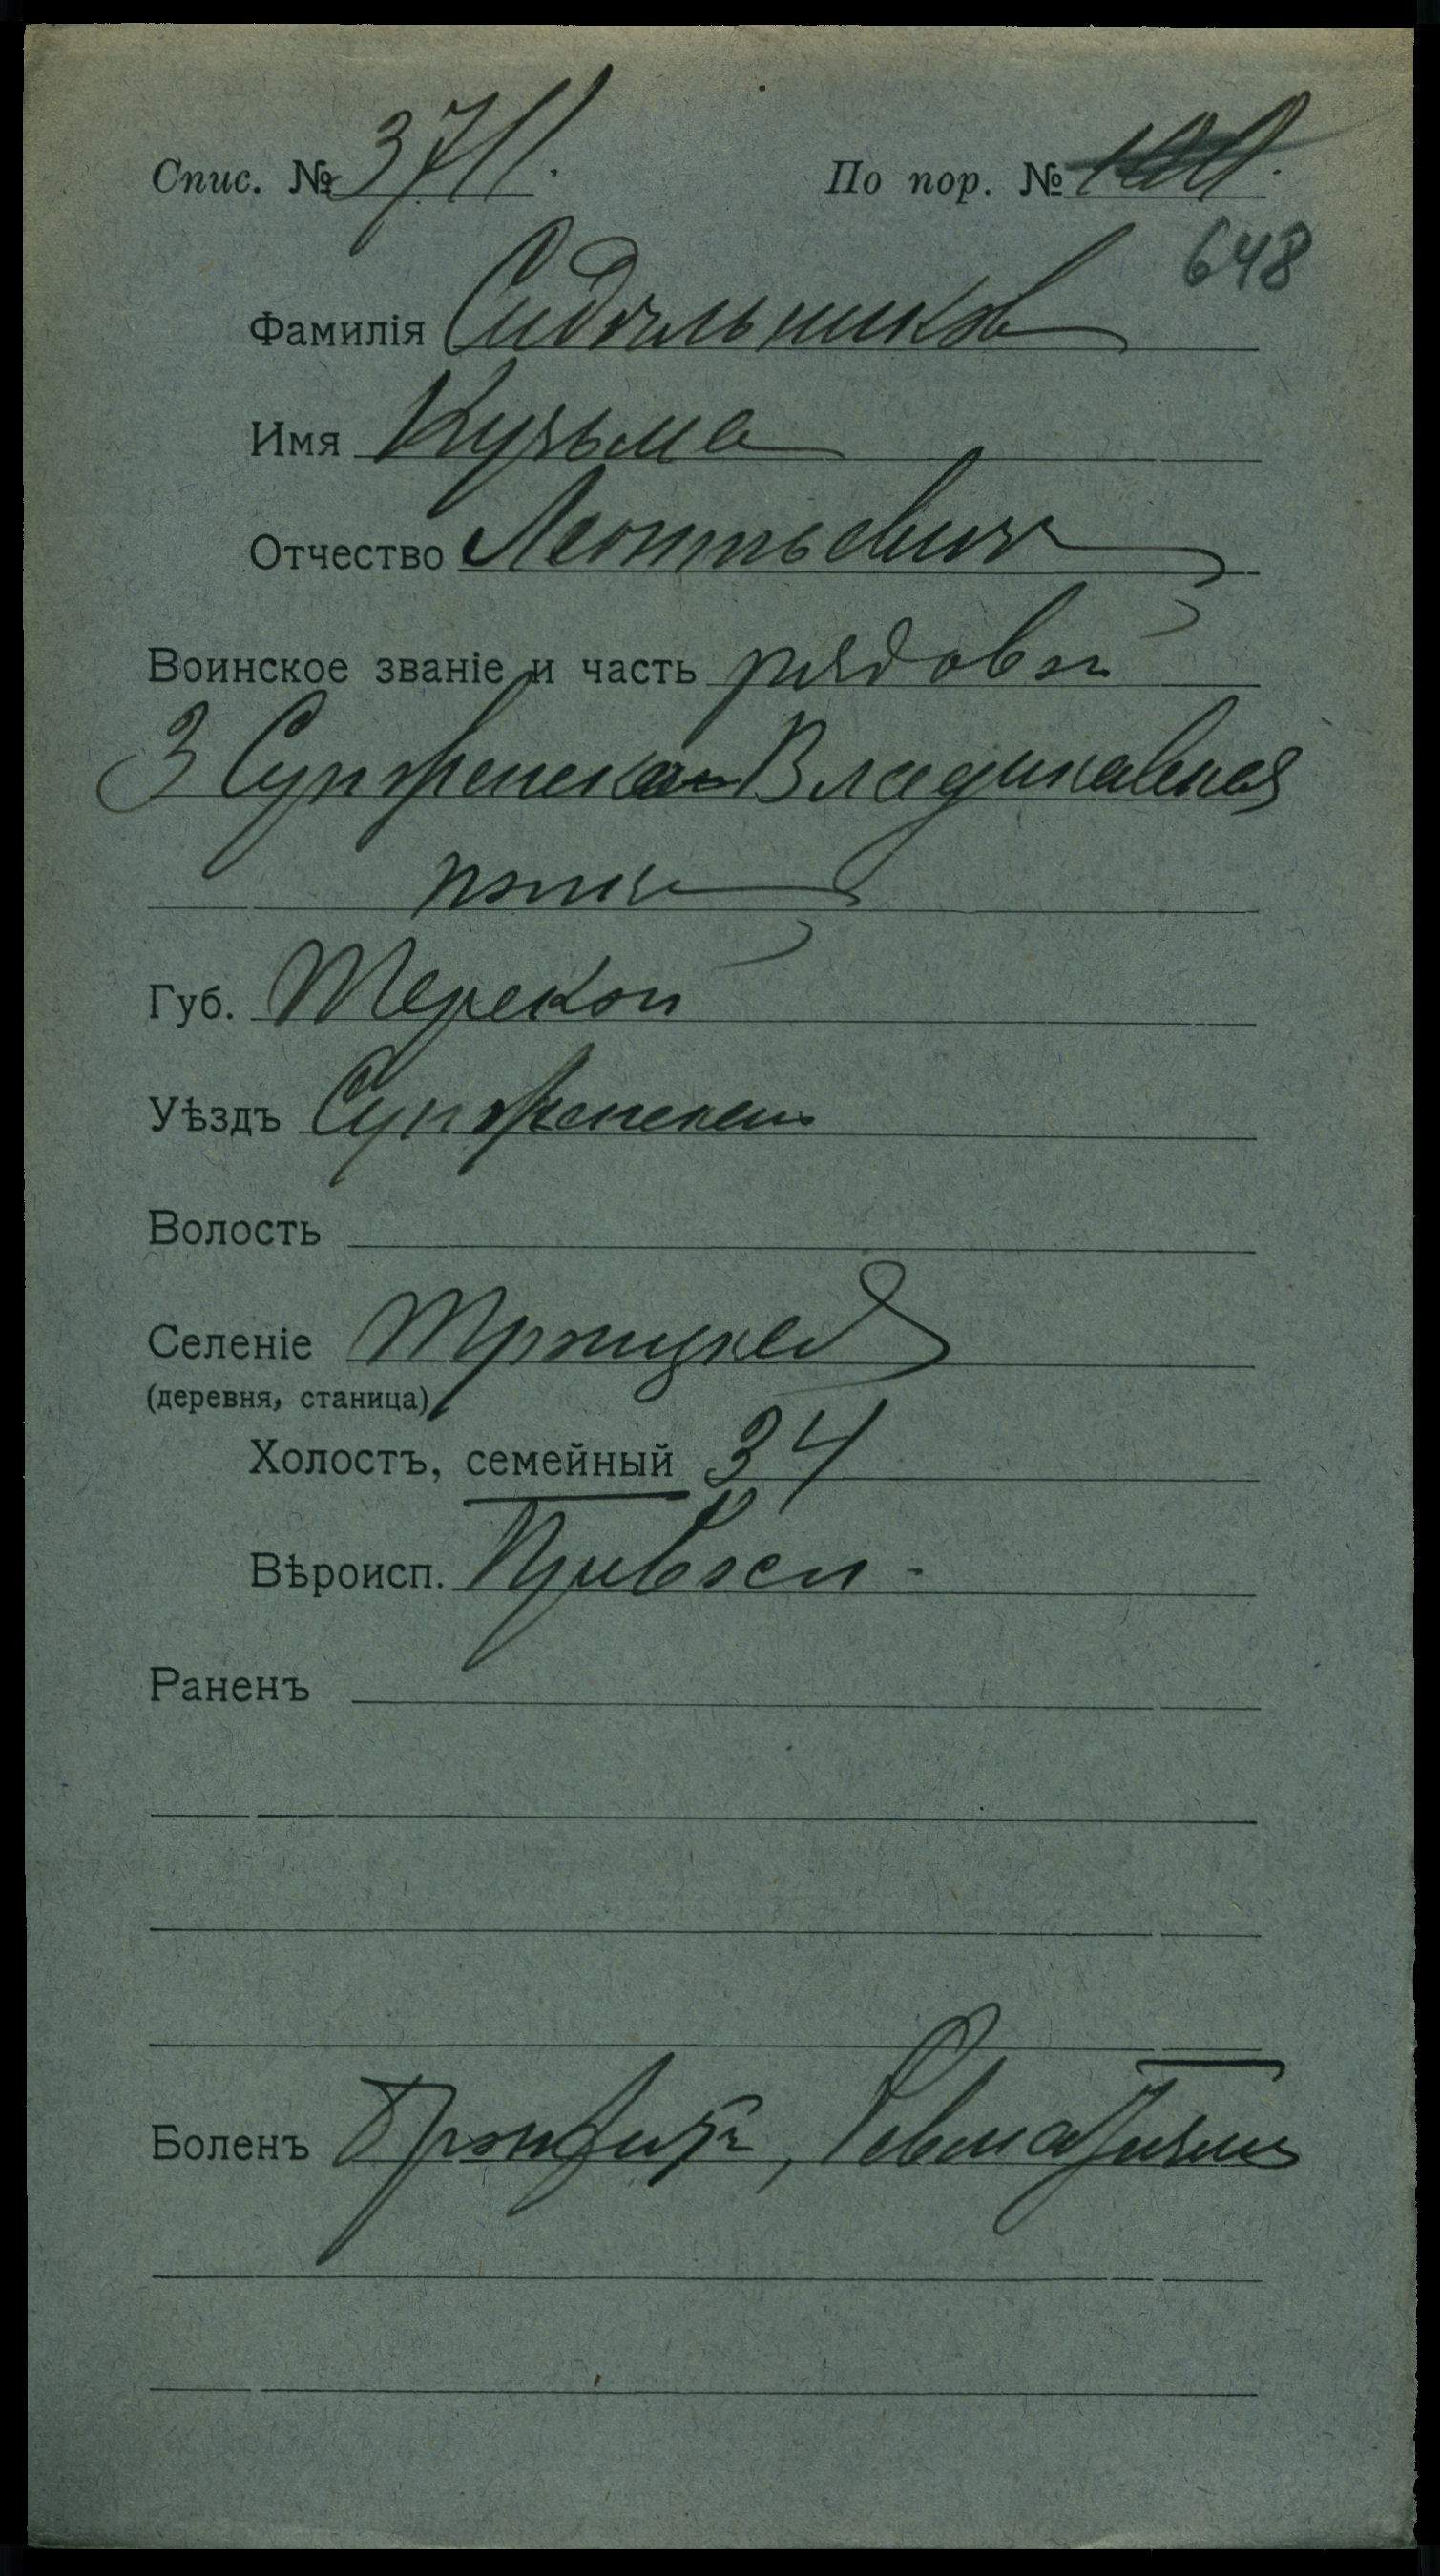 Спис. № 3711.
По пор. №
648
Фамилія Сидельников
Имя Кузьма
Отчество Леонтьевич
Воинское званіе и часть рядовой
3 Сунженско Владикавказ
полк
Губ. Терской
Уѣздъ Сунженскаго
Волость
Селеніе Троицкая
(деревня, станица)
Холостъ, семейный 34
Вѣроисп. Правосл -
Раненъ
Боленъ Бронхитъ, Ревматизмъ